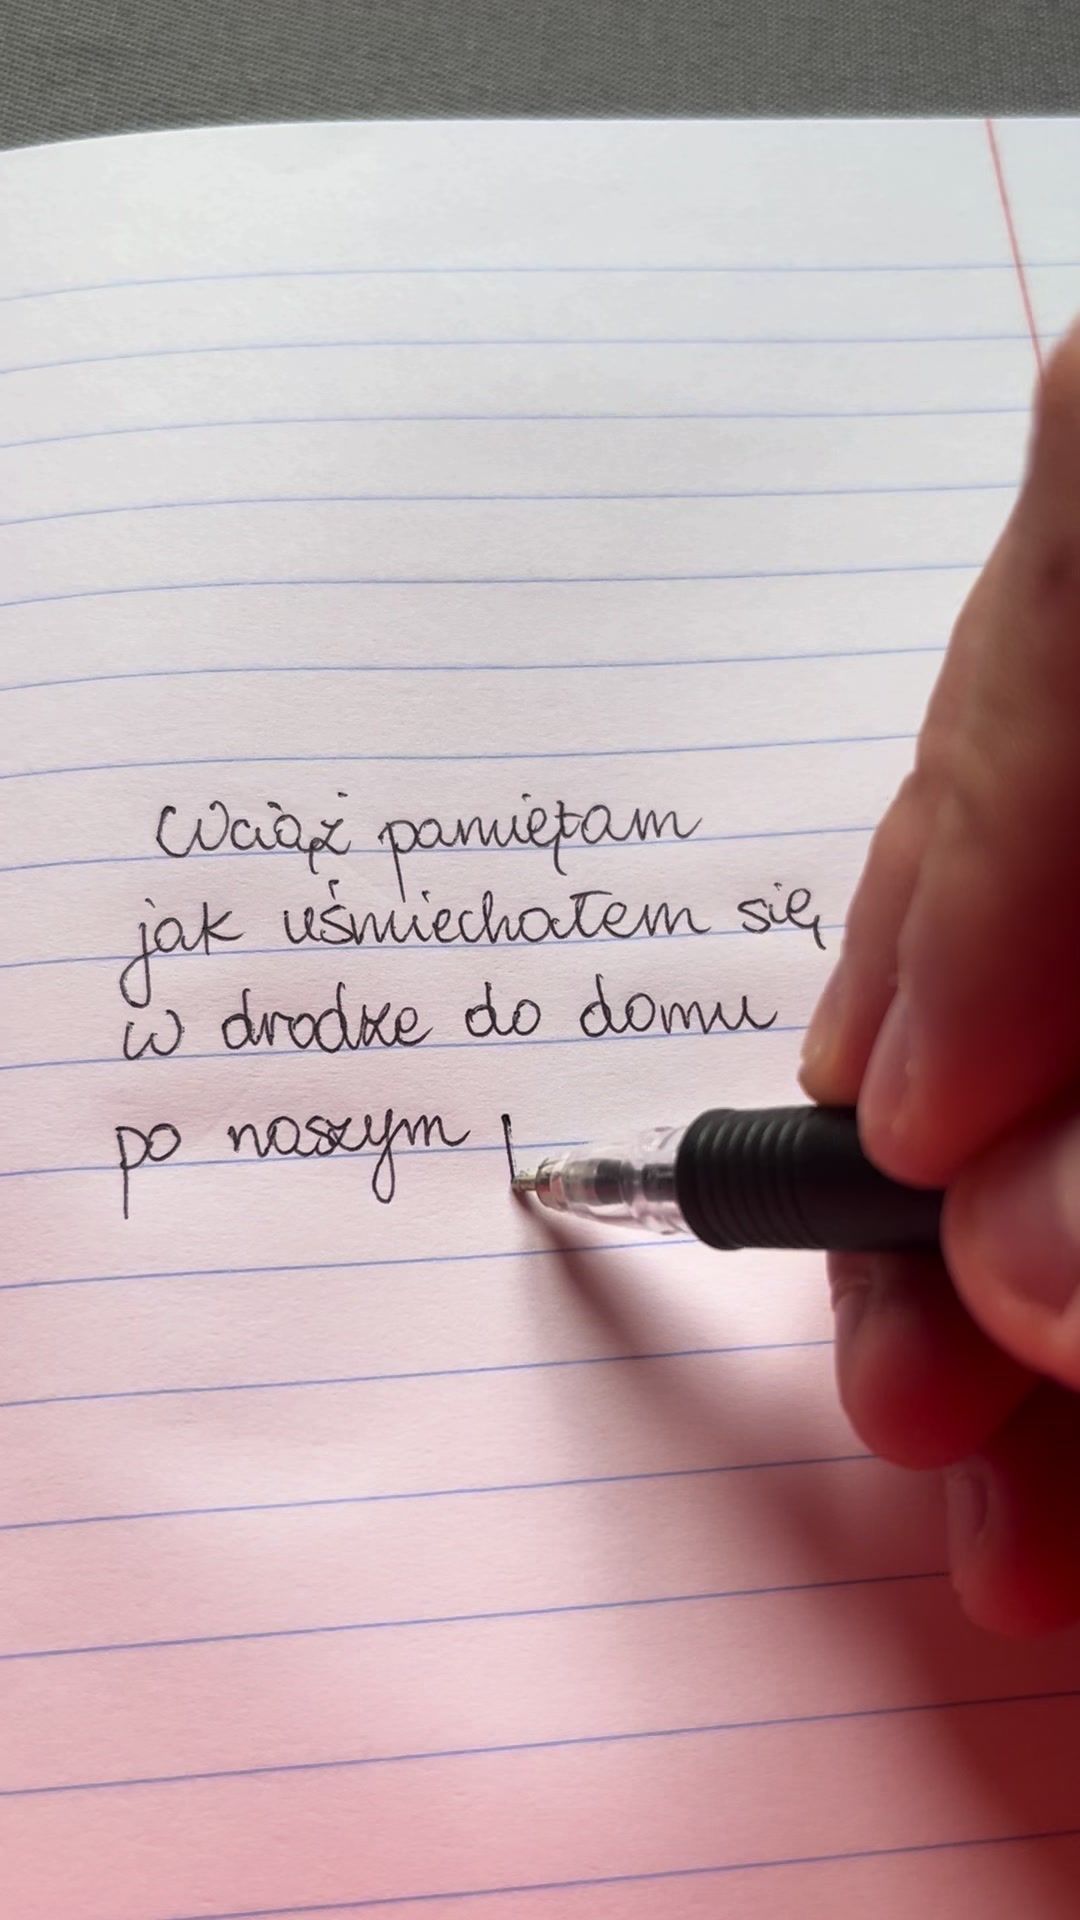 Wciąż pamiętam
jak uśmiechałem się
w drodze do domu
po naszym